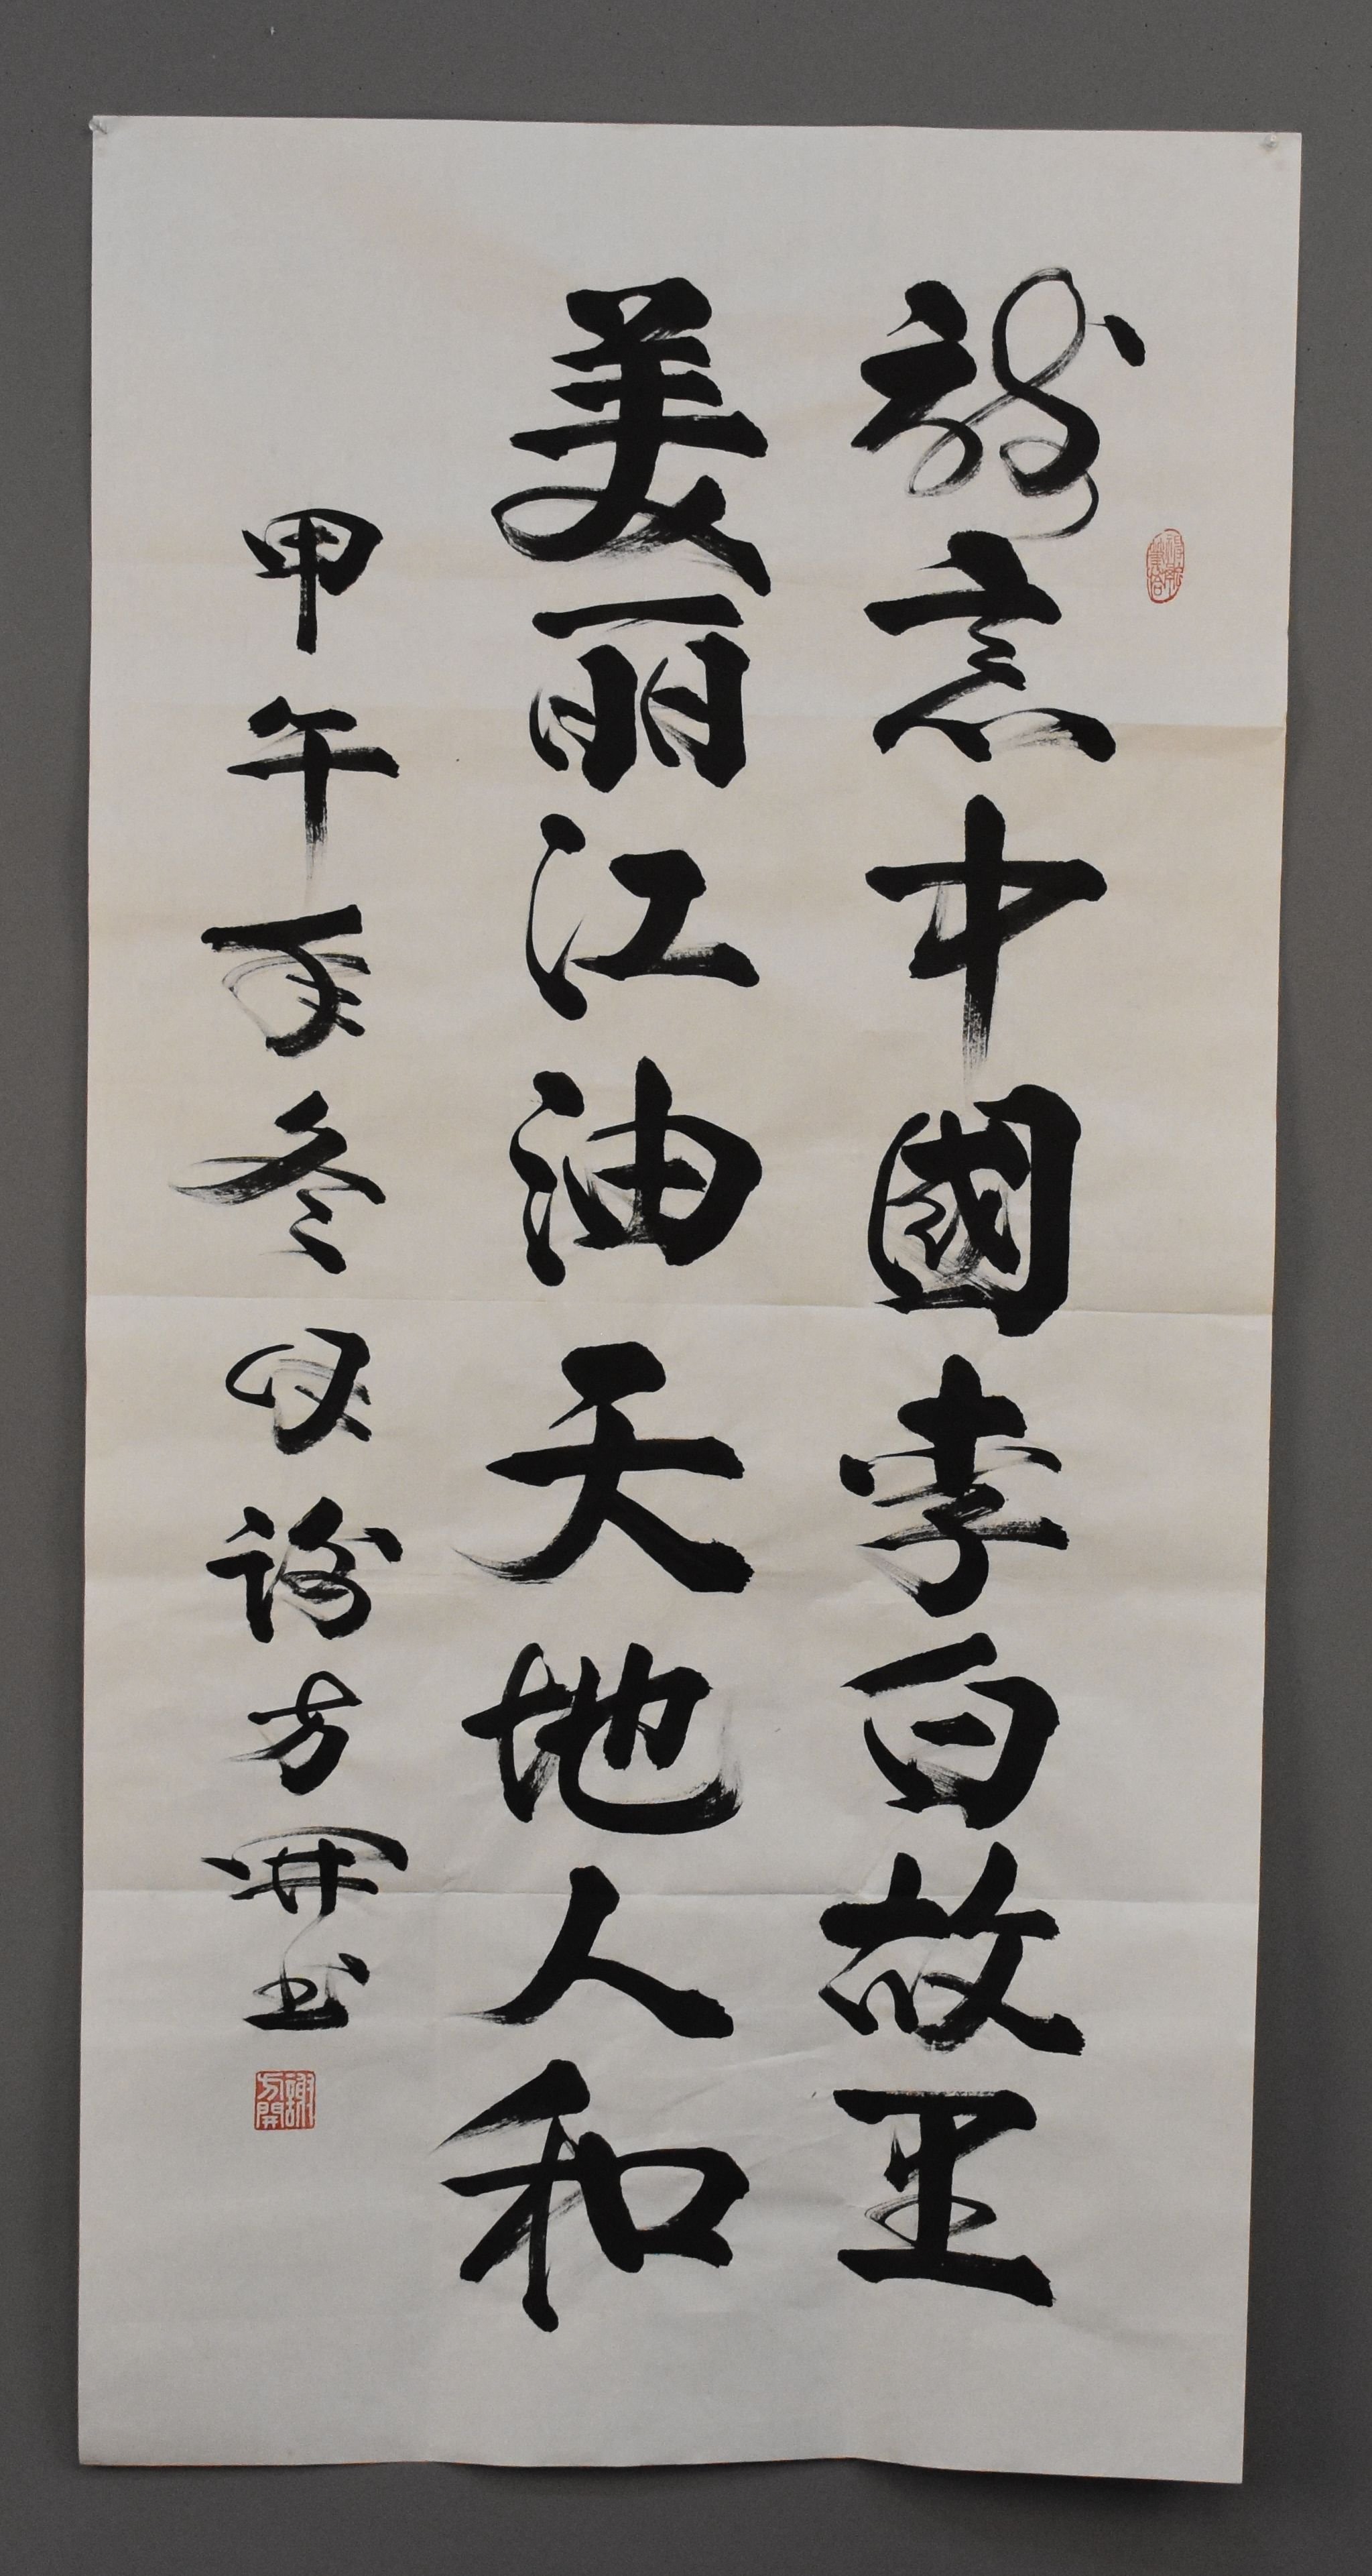 意中國李白故里
美丽江油天地人和
甲午年冬 謝方開书
謝方開